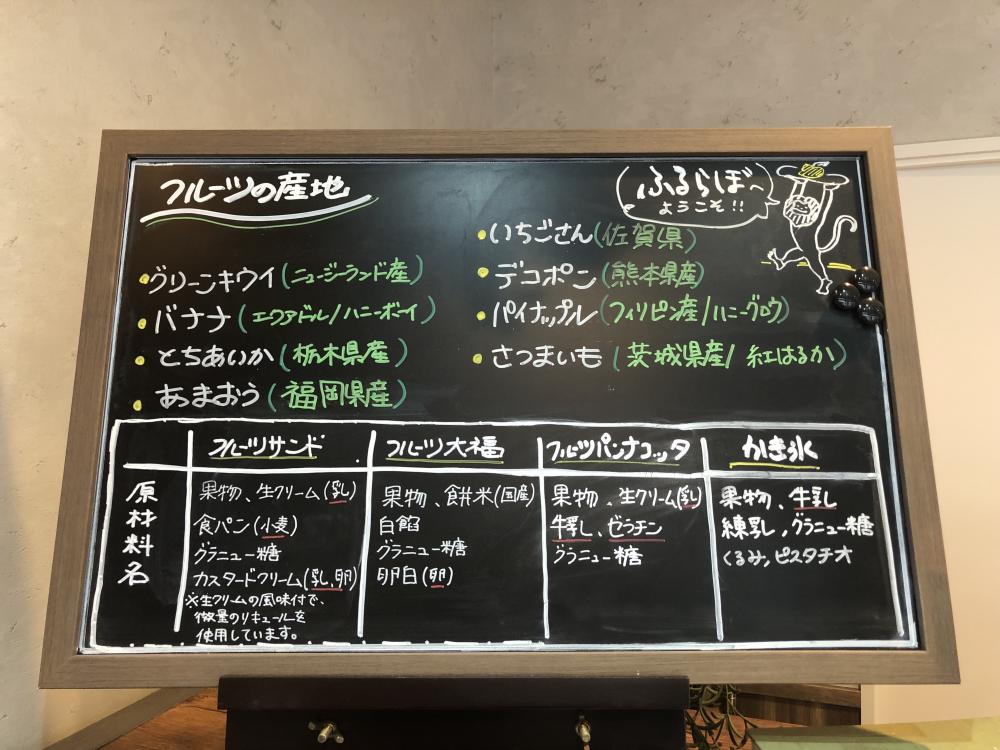 フルーツの産地
ふるらぼへ
ようこそ!!
・グリーンキウイ(ニュージーランド産)
・バナナ(エクアドル/ハニーボーイ)
・とちあいか(栃木県産)
・あまおう(福岡県産)
・いちごさん(佐賀県)
・デコポン(熊本県産)
・パイナップル(フィリピン産/ハニーグロウ)
・さつまいも(茨城県産/紅はるか)
原材料名
フルーツサンド
果物、生クリーム(乳)
食パン(小麦)
グラニュー糖
カスタードクリーム(乳、卵)
※生クリームの風味付で、
微量のリキュールを
使用しています。
フルーツ大福
果物、餅米(国産)
白餡
グラニュー糖
卵白(卵)
フルーツパンナコッタ
果物、生クリーム(乳)
牛乳、ゼラチン
グラニュー糖
かき氷
果物、牛乳
練乳、グラニュー糖
くるみ、ピスタチオ